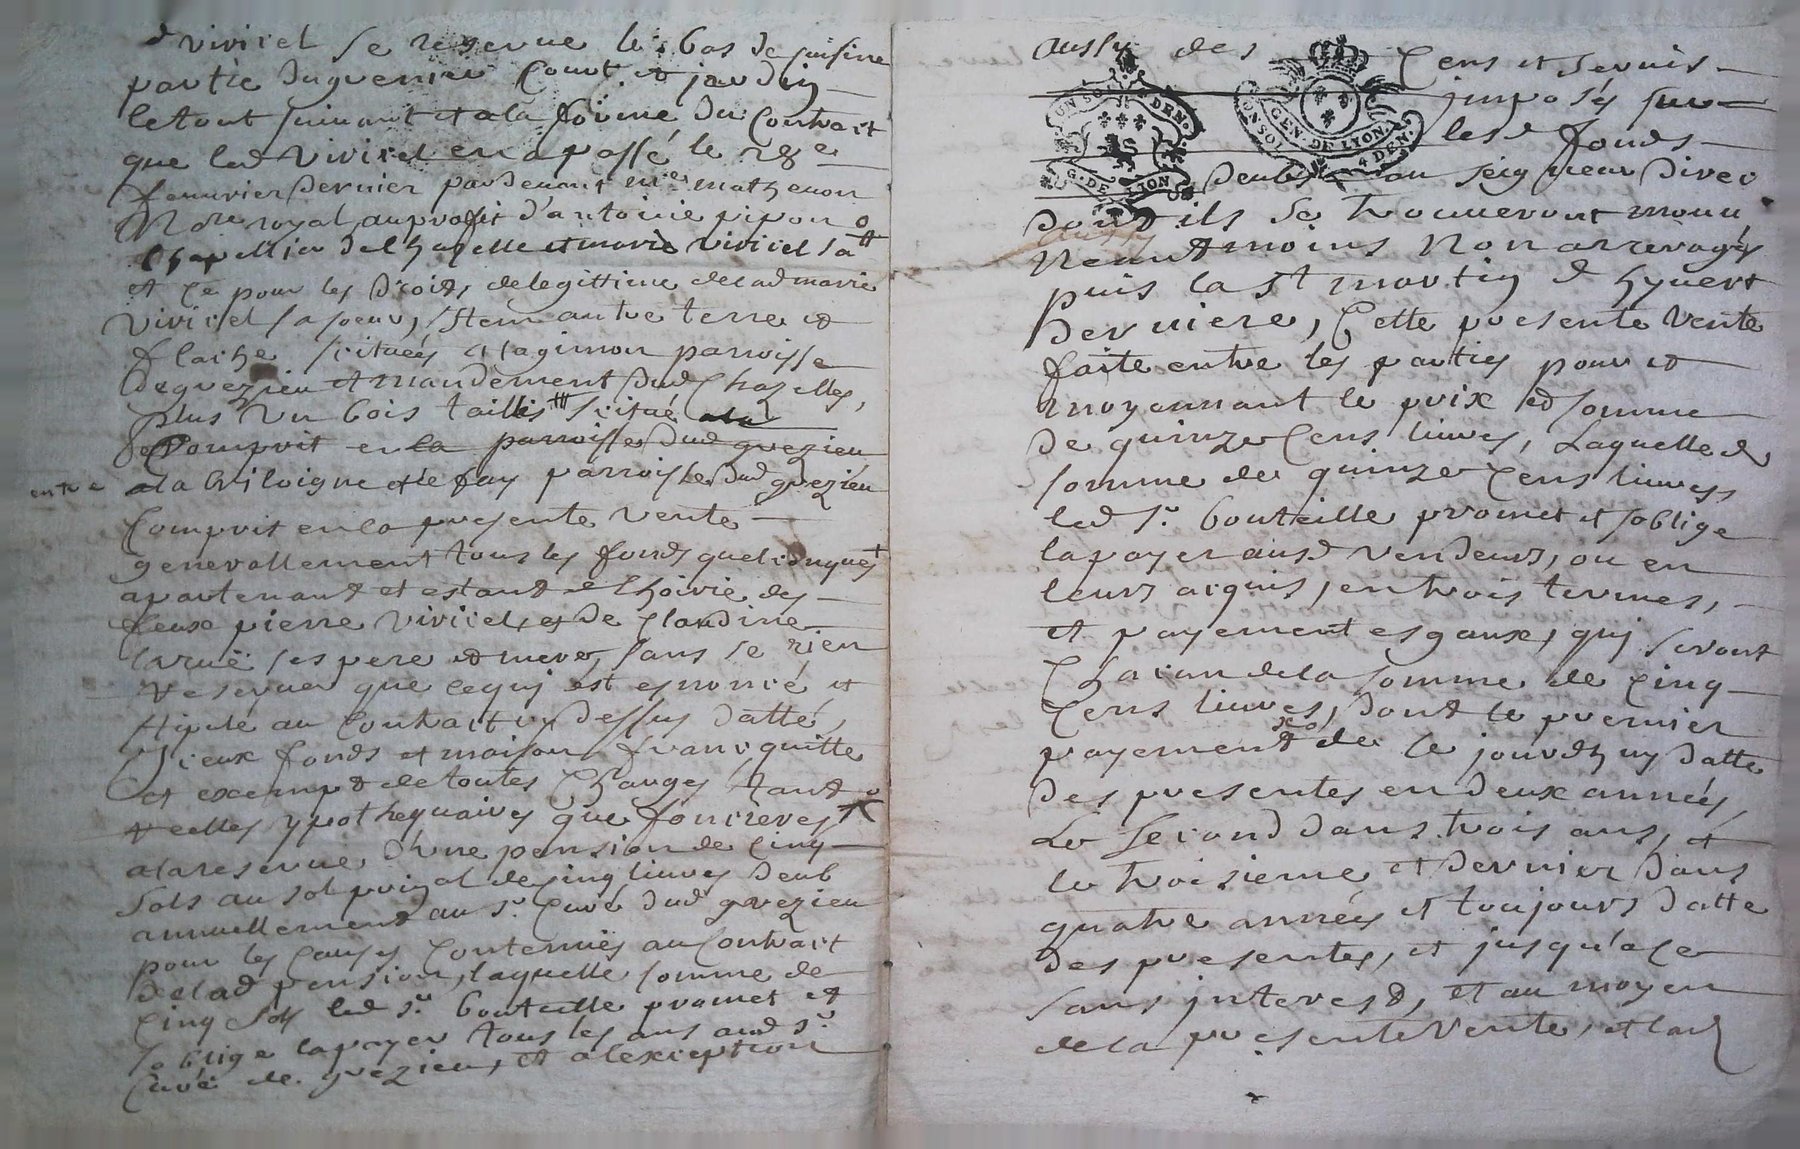 d vivicel se reserve le bas de cuisine
partie du grenier Court et jardin
le tout suivant et a la forme du Contract
que led vivicel en a passé le 28e
fevurier dernier pardevant me mathevon
No.re royal au profit d'antoine pipon
Chapellier de Chazelle et marie vivicel sa
et Ce pour les droits de legittime de lad marie
vivicel sa soeur, Item autre terre et
flache scituées a lagimon parroisse
de grezieu et mandement dud Chazelles,
plus Un bois taillis scitué
Comprit en la parroisse dud grezieu
entre a la et le fay parroisse dud grezieu
Comprit en la presente vente
generallement tous les fonds quelconques
apartenant et estant de l hoirie des
feux pierre vivicel, et de Claudine
larue ses pere et mere, sans se rien
reserver que ce qui est enoncé et
stipulé au Contract cy dessus datté,
Iceux fonds et maison franc quitte
et exempt de toutes Charges tant
ypothequaires que foncieres
a la reserve d'une pension de Cinq
Sols au sol prin.al de Cinq livres deub
annuellement au sr. Curé dud grezieu
pour les Causes Contenues au Contract
de lad pension, laquelle somme de
Cinq Sols led sr. bouteille promet et
soblige la payer tous les ans aud sr.
Curé de grezieu, et a lexception
aussy des Cens et servis
imposés sur
lesd fonds
deubs au seigneur direc
dont ils se trouveront mouv
Neantmoins Non arreragés
puis la st martin d hyvert
Derniere, Cette presente Vente
faite entre les parties pour et
moyennant le prix et somme
de quinze Cens livres, Laquelle d
somme de quinze Cens livres
led sr. bouteille promet et soblige
la payer ausd vendeurs, ou en
leurs acquis, en trois termes,
et payement esgaux, qui seront
Chacun de la somme de Cinq
Cens livres, dont le premier
payement de ce jourdhuy datte
des presentes en deux années,
Le second dans trois ans, et
le troisieme et dernier dans
quatre années et toujours datte
des presentes, et jusqu'a ce
sans interest, et au moyen
de la presente Vente, et lad
UN SOL DEN.
G. DE LYON
GEN. DE LYON.
UN SOL 4 DEN.